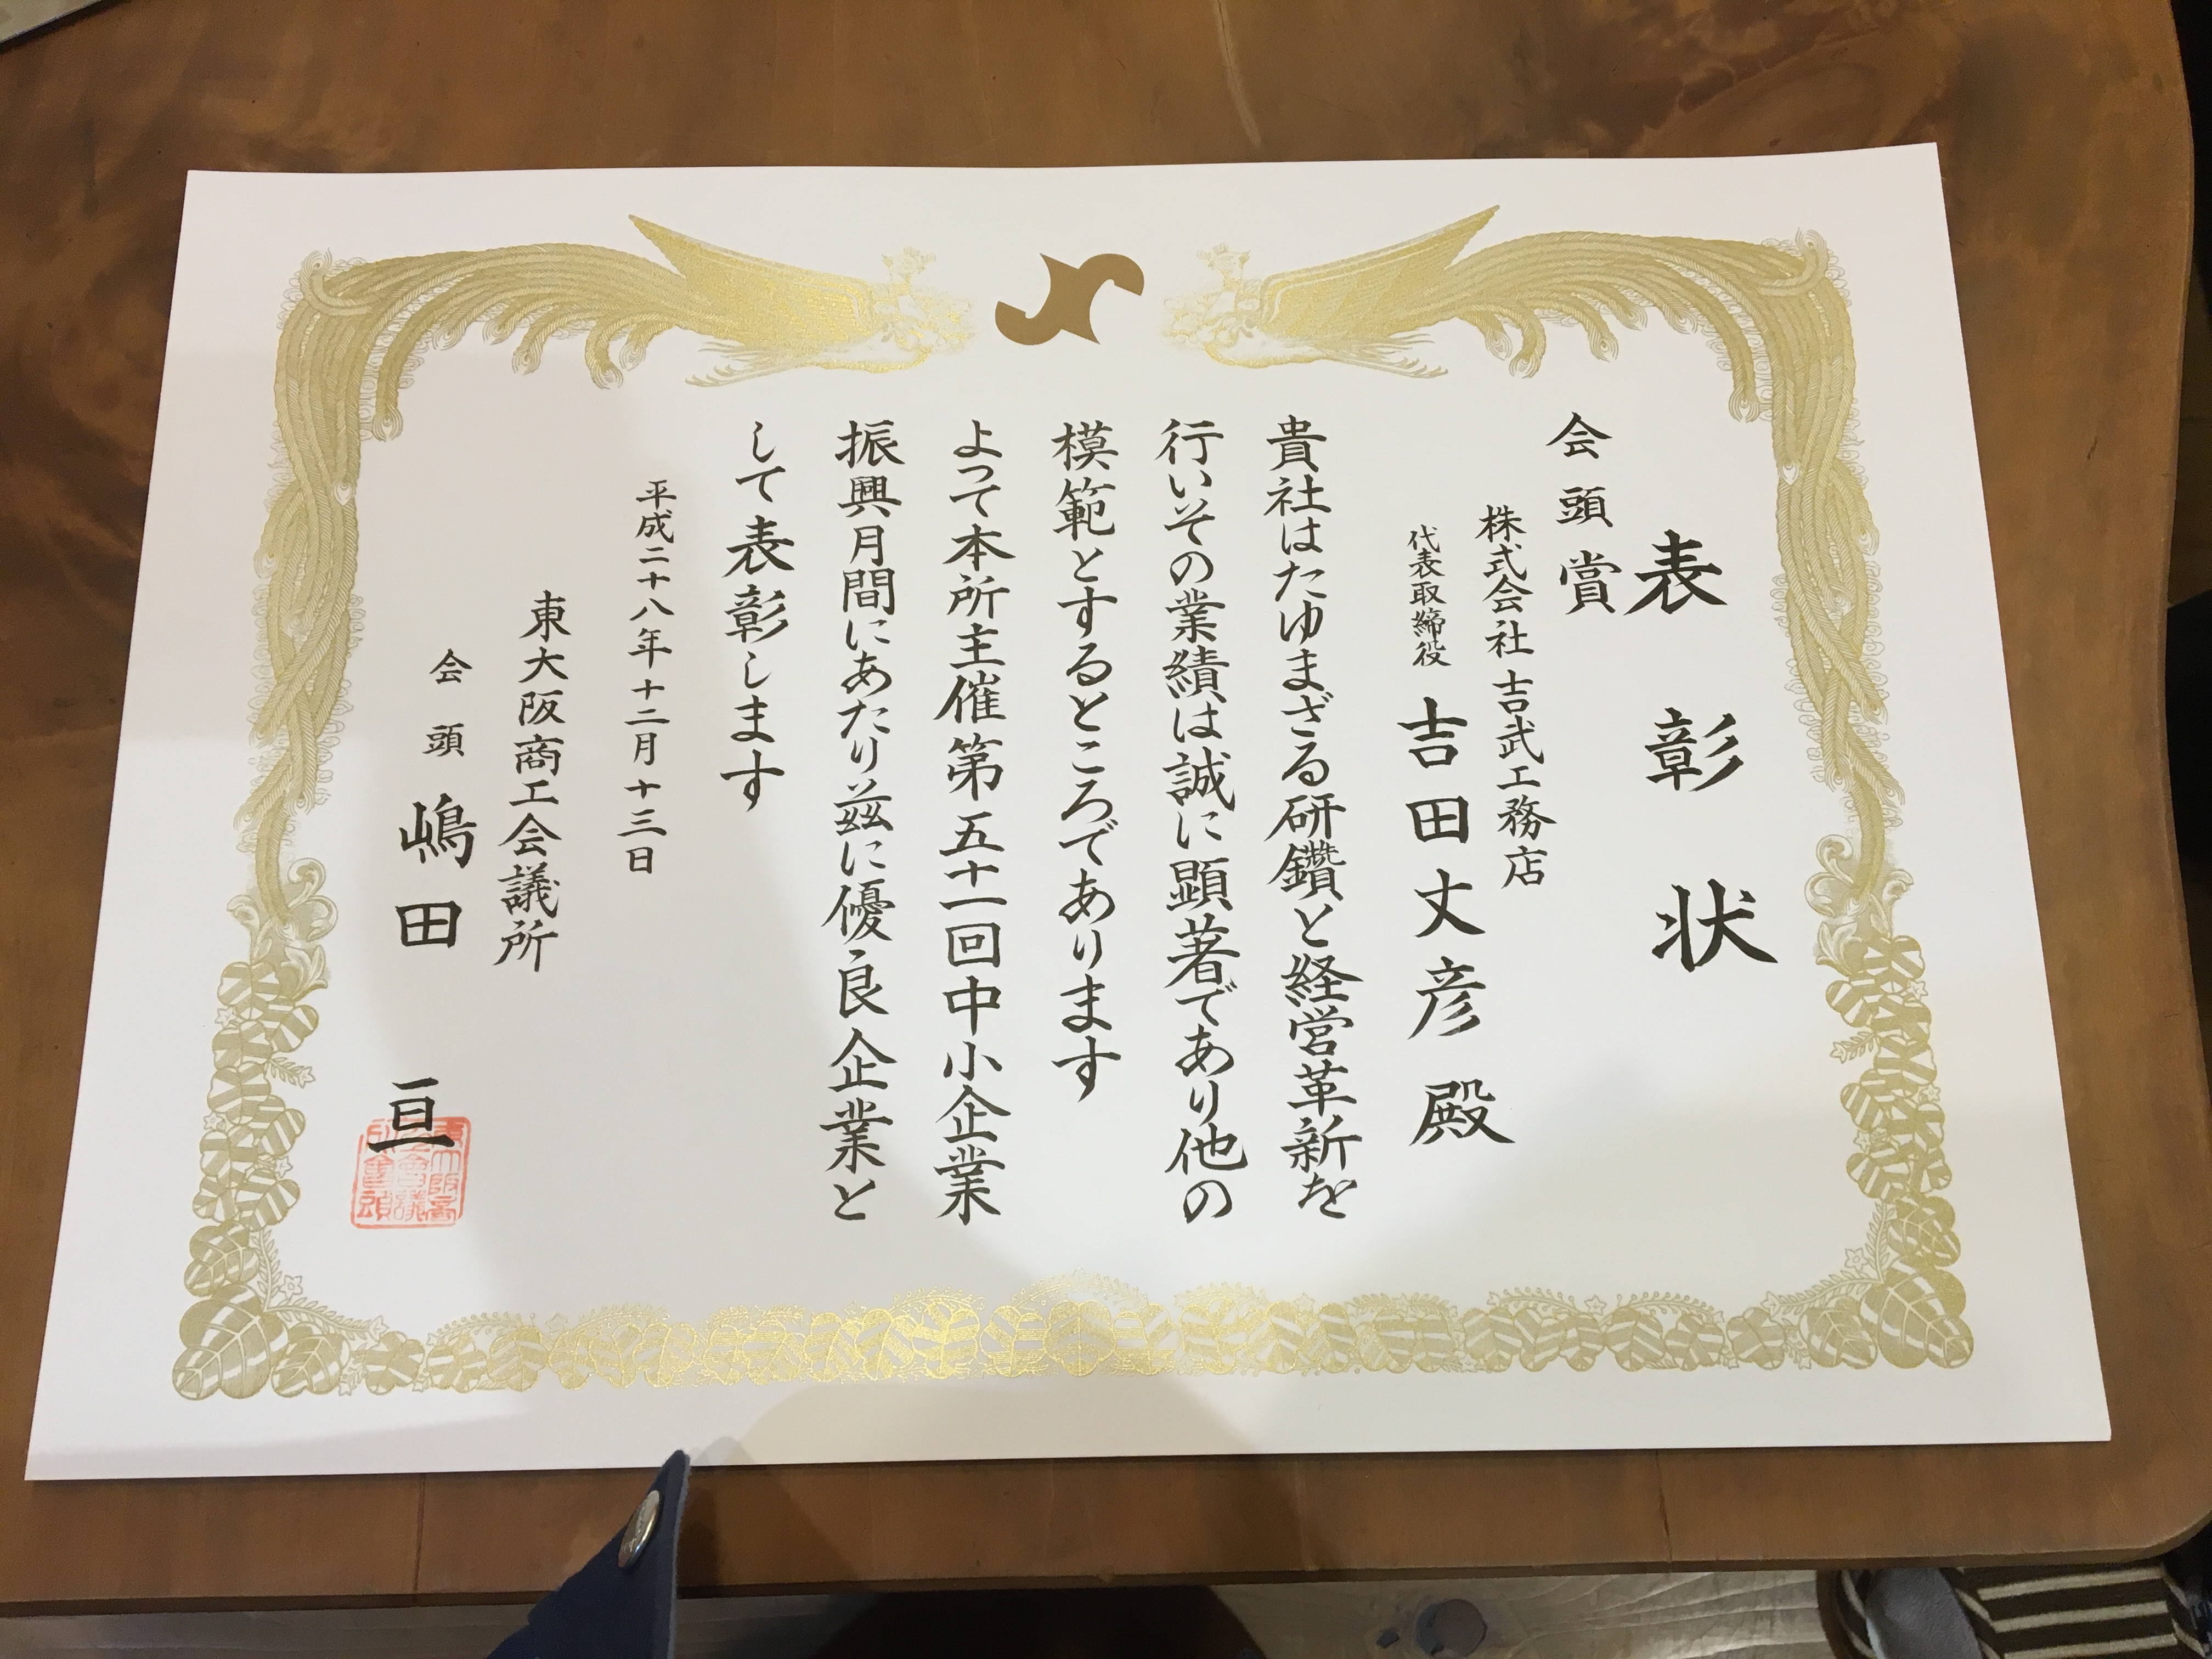 表彰状
会頭賞
株式会社 吉武工務店
代表取締役 吉田丈彦 殿
貴社はたゆまざる研鑽と経営革新を
行いその業績は誠に顕著であり他の
模範とするところであります
よって本所主催第五十一回中小企業
振興月間にあたり茲に優良企業と
して表彰します
平成二十八年十二月十三日
東大阪商工会議所
会頭 嶋田 亘